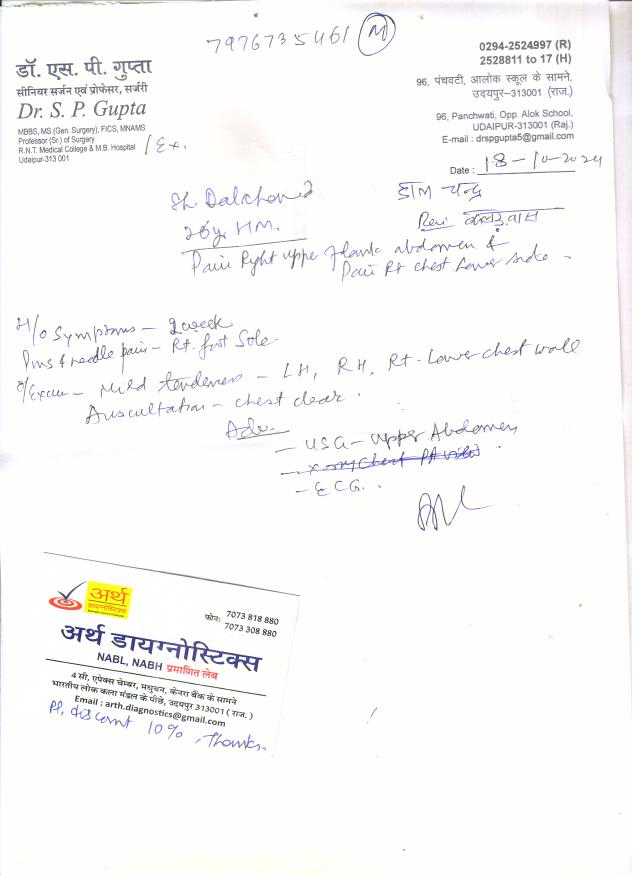 7976735461 M
डॉ. एस. पी. गुप्ता
सीनियर सर्जन एवं प्रोफेसर, सर्जरी
Dr. S. P. Gupta
MBBS, MS (Gen. Surgery), FICS, MNAMS
Professor (Sr.) of Surgery
R.N.T. Medical College & M.B. Hospital
Udaipur-313 001
/Ex.
0294-2524997 (R)
2528811 to 17 (H)
96, पंचवटी, आलोक स्कूल के सामने,
उदयपुर–313001 (राज.)
96, Panchwati, Opp. Alok School,
UDAIPUR-313001 (Raj.)
E-mail : drspgupta5@gmail.com
Date : 18-10-2024
Sh. Dalchand
HM.
चन्द्र
Pain Right upper flank abdomen &
Pain Rt chest Lower side.
H/o Symptoms – 2 week
Pins & needle pain – Rt. foot Sole.
O/Exam – Mild tenderness – LH, RH, Rt. Lower chest wall
Auscultation – chest clear.
Adv.
– USG – Upper Abdomen
– X-ray Chest PA view
– ECG.
अर्थ
डायग्नोस्टिक्स
फोन: 7073 818 880
7073 308 880
अर्थ डायग्नोस्टिक्स
NABL, NABH प्रमाणित लेब
4 सी, एपेक्स चेम्बर, मधुबन, केनरा बैंक के सामने
भारतीय लोक कला मंडल के पीछे, उदयपुर 313001 ( राज. )
Email : arth.diagnostics@gmail.com
Pl. discount 10%, Thanks.